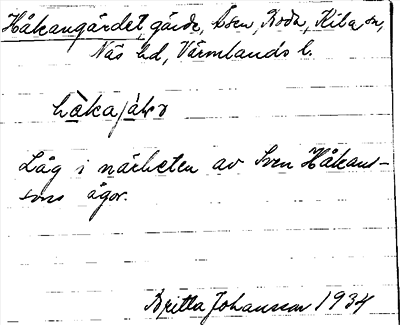 Håkangärdet, gärde, Åsen, Roda, Kila sn,
Näs hd, Värmlands l.
håkajär
Låg i närheten av Sven Håkans-
sons ågor.
Britta Johansson 1934